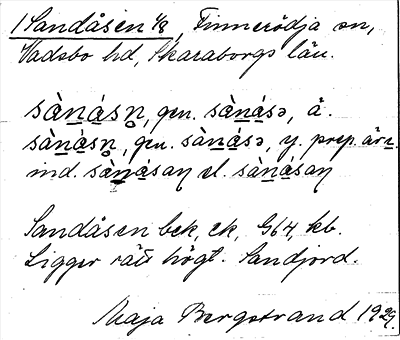 1 Sandåsen 4/8, Finnerödja sn,
Vadsbo hd, Skaraborgs län.
sàn̲á̲sn̥, gen. sàn̲á̲sə, å.
sàn̲á̲sn̥, gen. sàn̲á̲sə, y. prep.
ind. sàn̲á̲san el. sàn̲á̲san
Sandåsen bek, ek, G64, kb.
Ligger rätt högt. Sandjord.
Maja Bergstrand 1929.